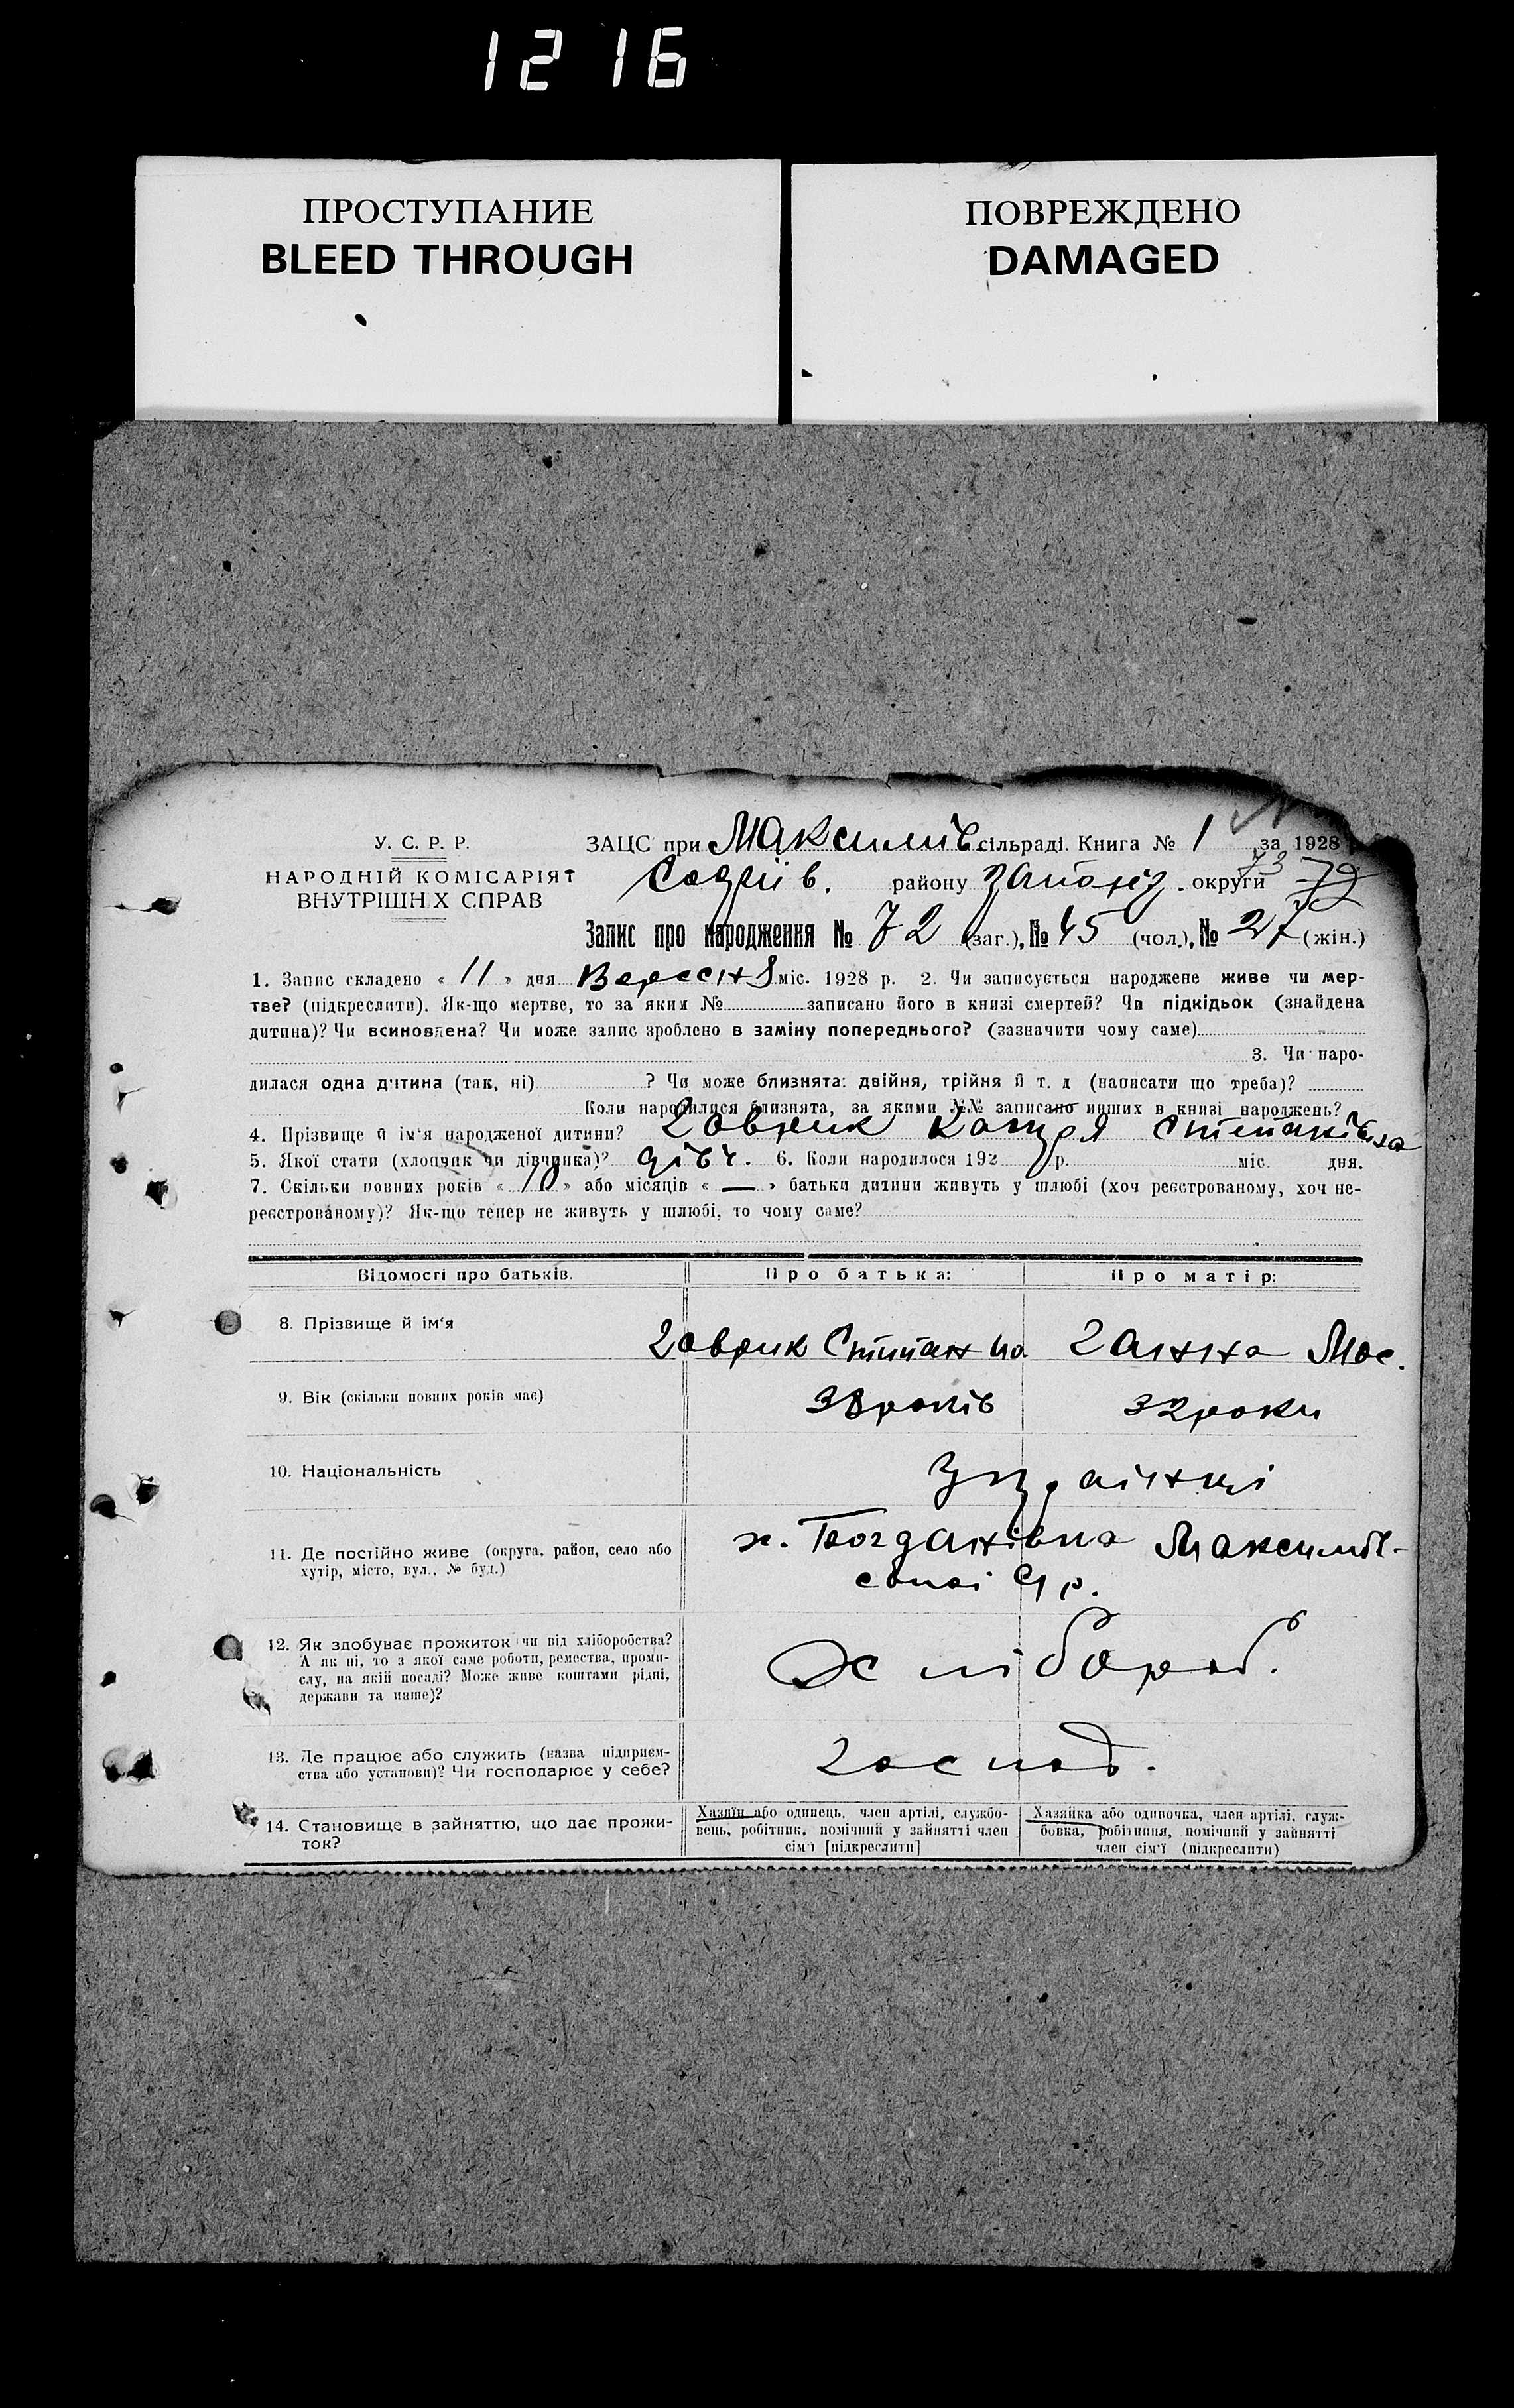 1216
ПРОСТУПАНИЕ
BLEED THROUGH
ПОВРЕЖДЕНО
DAMAGED
У. С. Р. Р.
НАРОДНІЙ КОМІСАРІЯТ
ВНУТРІШНІХ СПРАВ
ЗАЦС при Максимів сільраді. Книга № 1 за 1928
району округи 73 79
Запис про народження № 72 (заг.), № 45 (чол.), № 27 (жін.)
1. Запис складено « 11 » дня Вересня міс. 1928 р. 2. Чи записується народжене живе чи мер-
тве? (підкреслити). Як-що мертве, то за яким № записано його в книзі смертей? Чи підкідьок (знайдена
дитина)? Чи всиновлена? Чи може запис зроблено в заміну попереднього? (зазначити чому саме)
3. Чи наро-
дилася одна дитина (так, ні) ? Чи може близнята: двійня, трійня й т. д (написати що треба)?
Коли народилися близнята, за якими №№ записано инших в книзі народжень?
4. Прізвище й ім‘я народженої дитини? Говрик Катря Степанівна
5. Якої стати (хлопчик чи дівчинка)? дівч. 6. Коли народилося 192 р. міс. дня.
7. Скільки повних років « 10 » або місяців « — » батьки дитини живуть у шлюбі (хоч реєстрованому, хоч не-
реєстрованому)? Як-що тепер не живуть у шлюбі, то чому саме?
Відомості про батьків. Про батька: Про матір:
8. Прізвище й ім‘я Говрик Степан Ганна
9. Вік (скільки повних років має) 38 років 32 роки
10. Національність Українці
11. Де постійно живе (округа, район, село або
хутір, місто, вул., № буд.)
х. Богданівка Максимів-
12. Як здобуває прожиток чи від хліборобства?
А як ні, то з якої саме роботи, ремества, проми-
слу, на якій посаді? Може живе коштами рідні,
держави та инше)?
Хлібороб.
13. Де працює або служить (назва підприєм-
ства або установи)? Чи господарює у себе?
господ.
14. Становище в зайняттю, що дає прожи-
ток?
Хазяїн або одинець, член артілі, службо-
вець, робітник, помічний у зайнятті член
сім‘ї [підкреслити]
Хазяйка або одиночка, член артілі, служ-
бовка, робітниця, помічний у зайнятті
член сім‘ї (підкреслити)